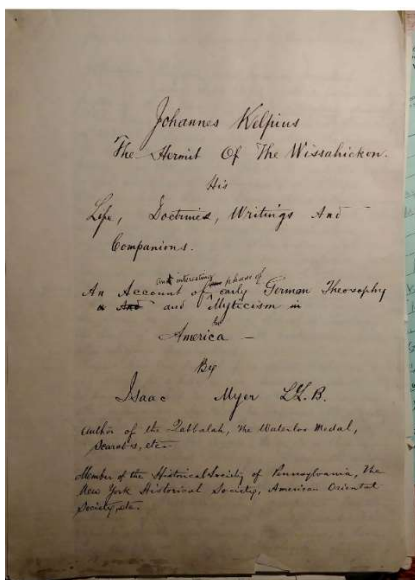 Johannes Kelpius
The Hermit Of The Wissahickon.
His
Life, Doctrines, Writings And
Companions.
interesting phase of
An Account of early German Theosophy
and Mysticism in
America —
By
Isaac Myer LL.B.
Author of the Qabbalah, The Waterloo Medal,
Scarabs, etc.
Member of the Historical Society of Pennsylvania, The
New York Historical Society, American Oriental
Society, etc.